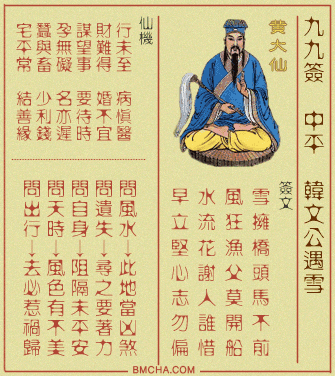 九九簽 中平 韓文公遇雪
黃大仙
簽文
雪擁橋頭馬不前
風狂漁父莫開船
水流花謝人誰惜
早立堅心志勿偏
仙機
行未至 病慎醫
財難得 婚不宜
謀望事 要待時
孕無礙 名亦遲
蠶與畜 少利錢
宅平常 結善緣
問風水→此地當凶煞
問遺失→尋之要著力
問自身→阻隔未平安
問天時→風色有不美
問出行→去必惹禍歸
BMCHA.COM